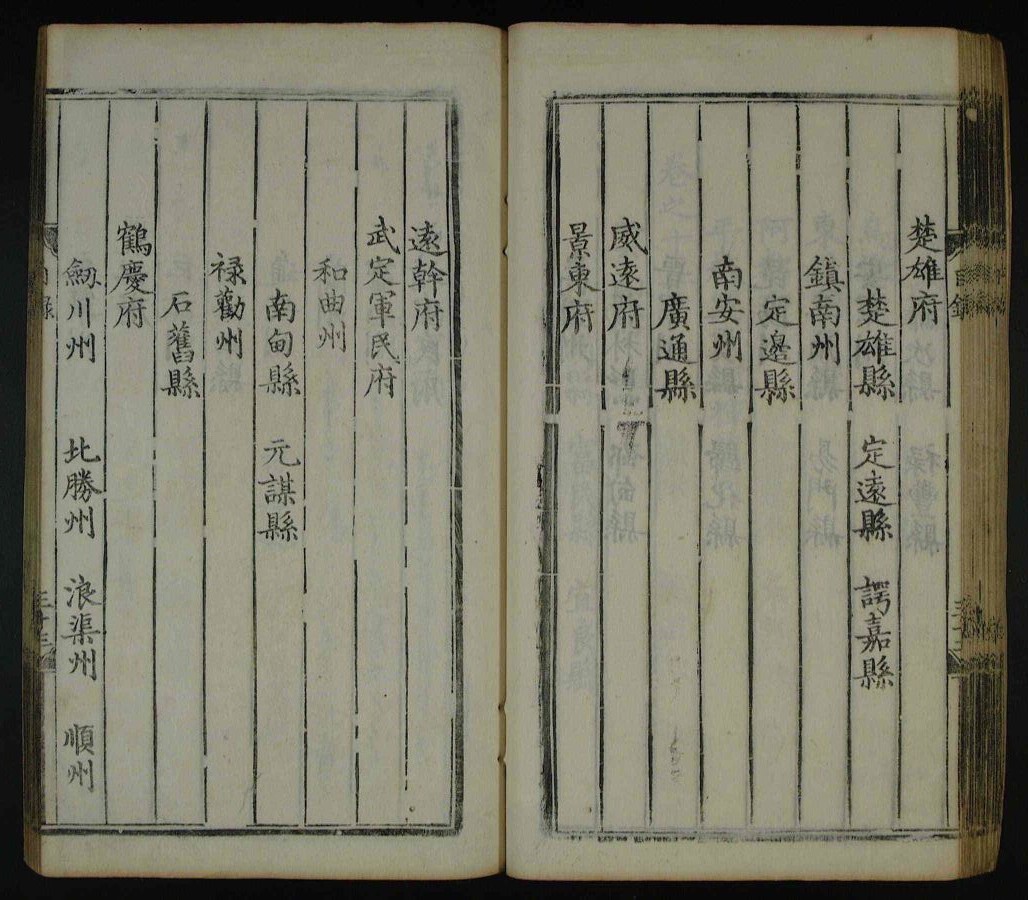 楚雄府
楚雄縣 定遠縣 諤嘉縣
鎮南州
定邊縣
南安州
廣通縣
威遠府
景東府
遠幹府
武定軍民府
和曲州
南甸縣 元謀縣
祿勸州
石舊縣
鶴慶府
劒川州 北勝州 浪渠州 順州
目錄